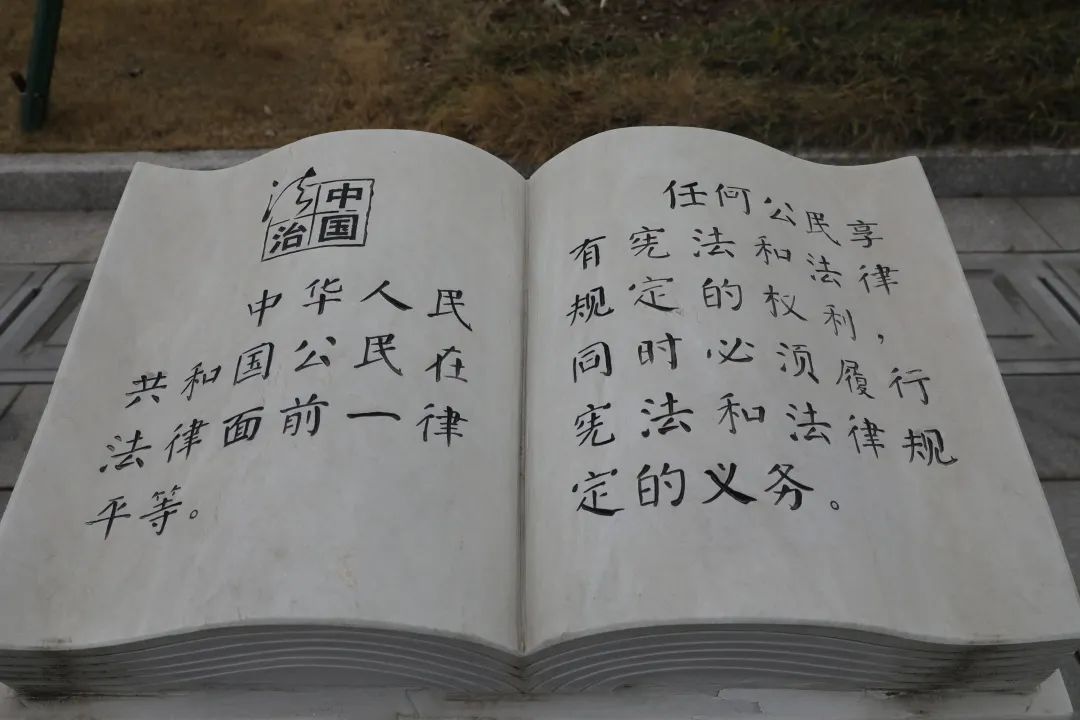 法治中国
中华人民
共和国公民在
法律面前一律
平等。
任何公民享
有宪法和法律
规定的权利，
同时必须履行
宪法和法律规
定的义务。